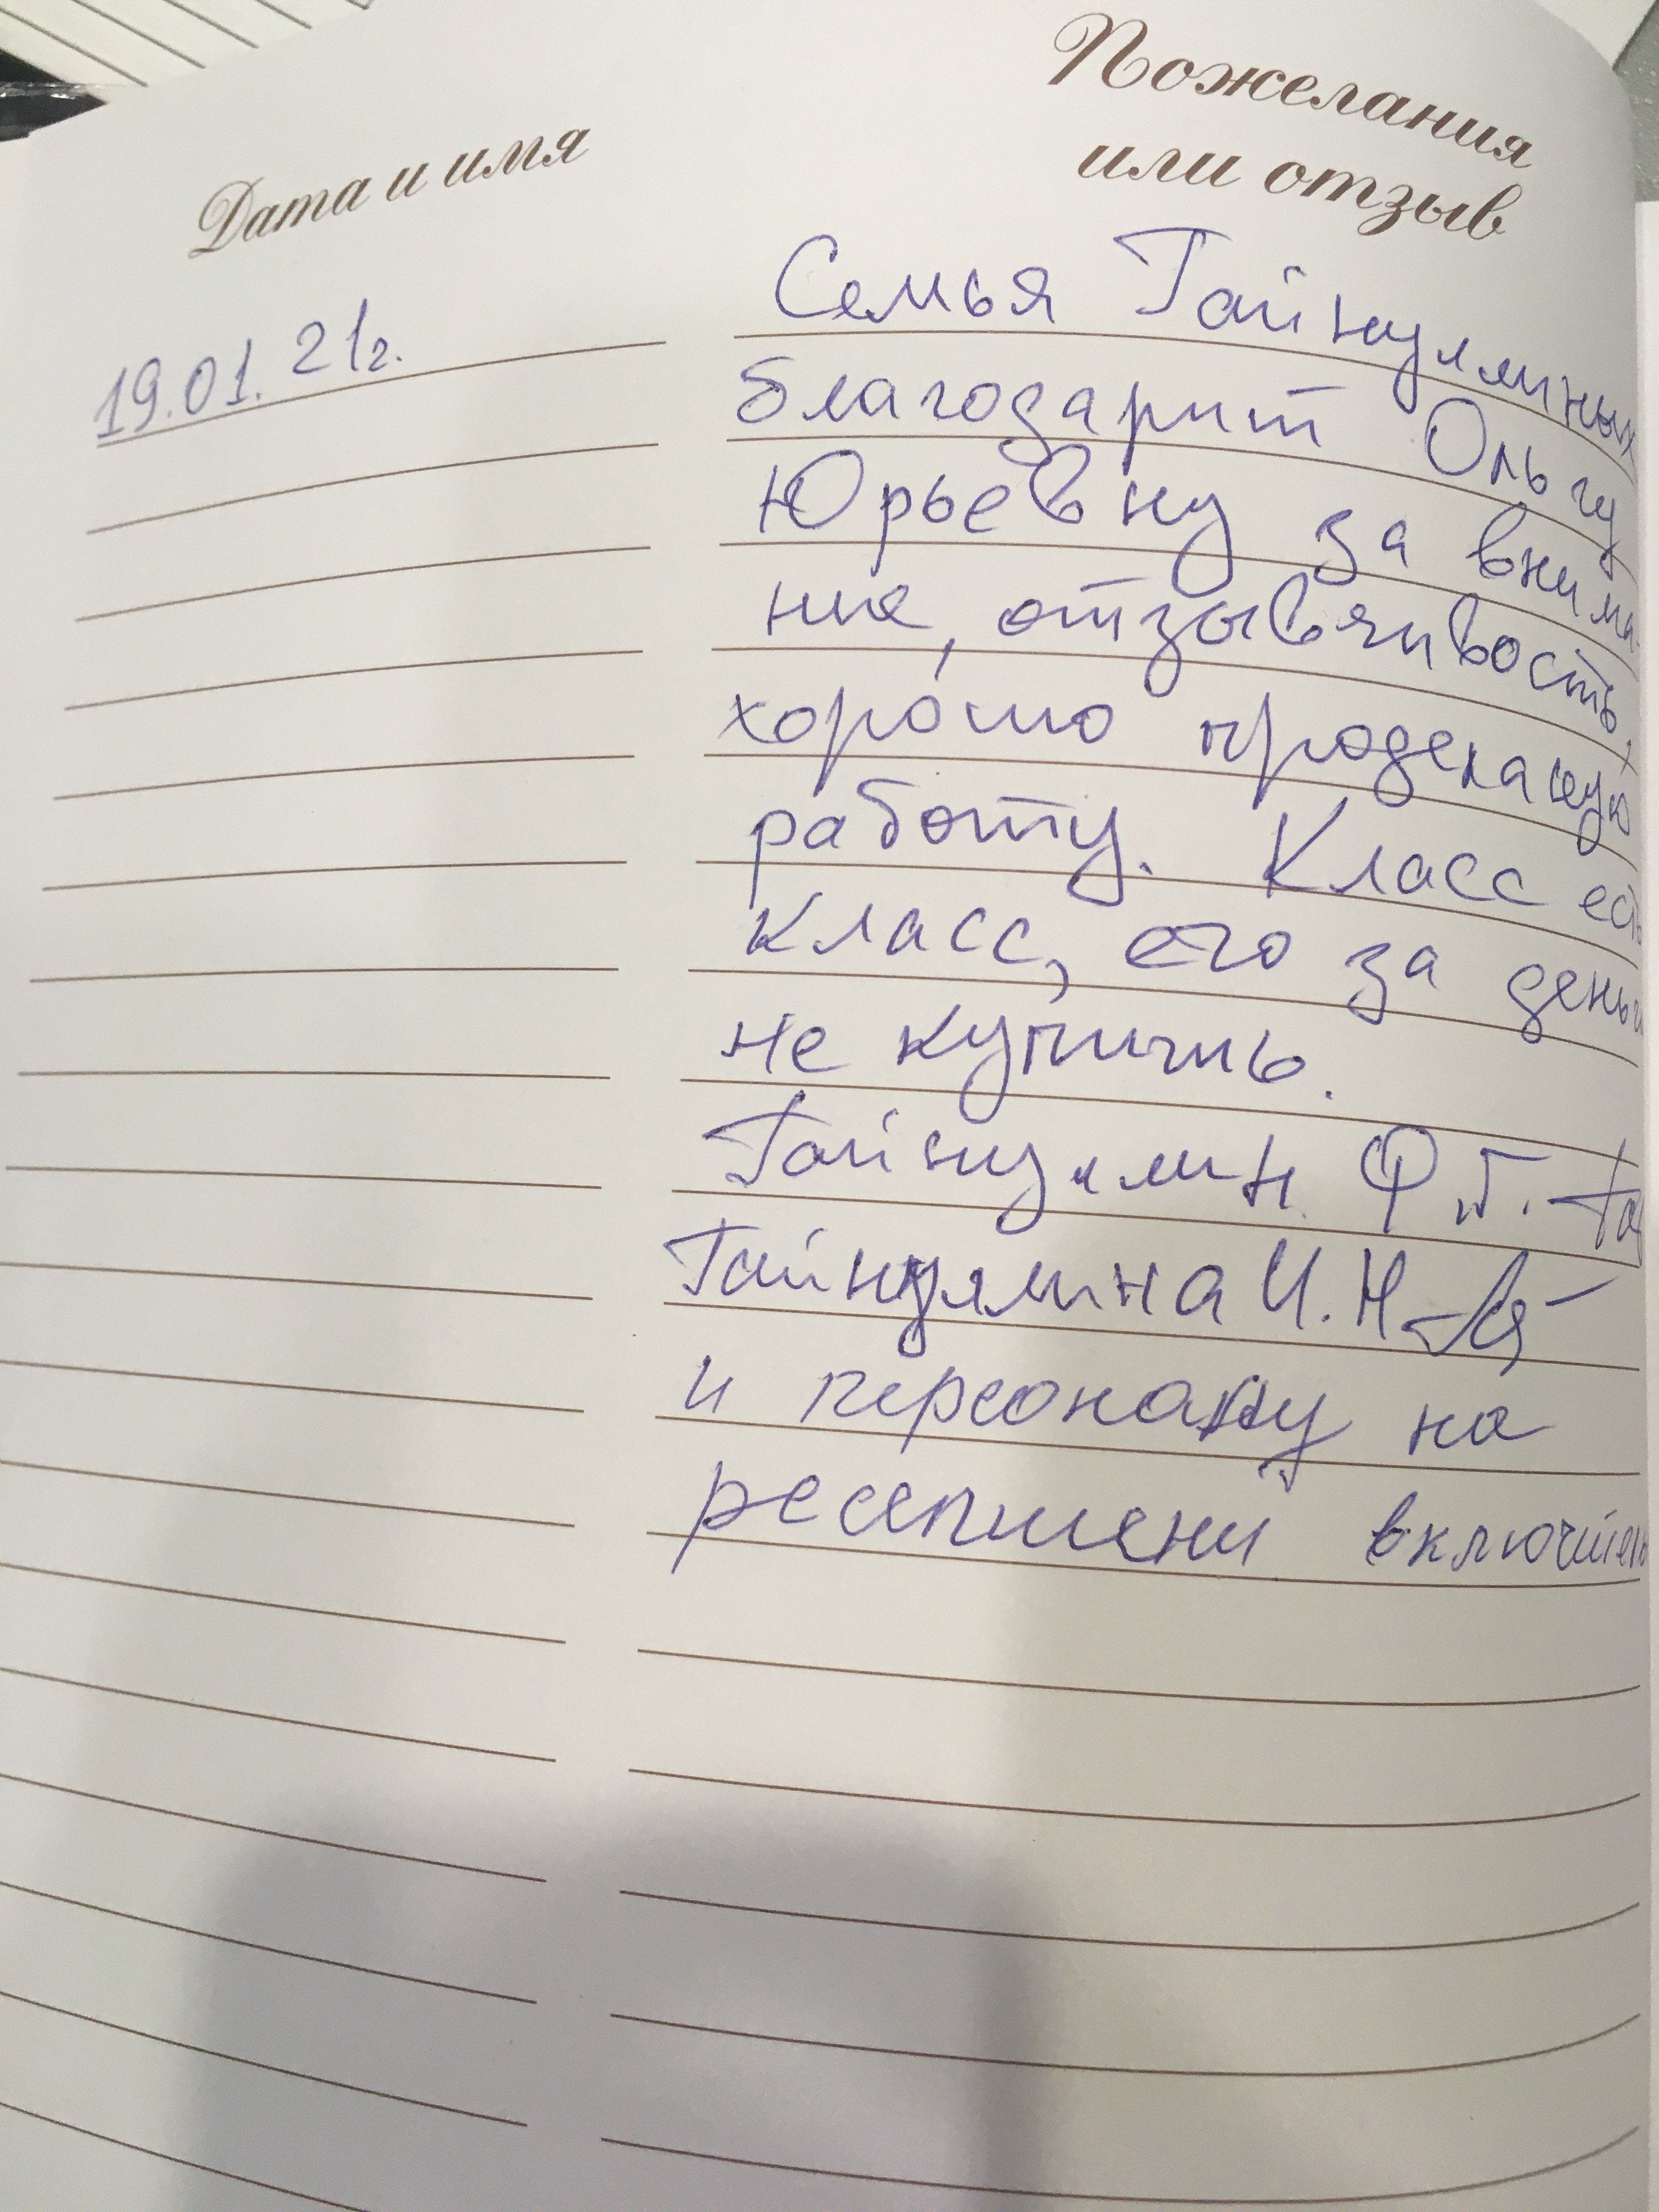 Дата и имя
Пожелания
или отзыв
19.01.21г.
Семья Гайнуллиных
благодарит Ольгу
Юрьевну за внима-
ние, отзывчивость,
хорошо проделаную
работу. Класс есть
класс, его за деньги
не купишь.
Гайнуллин Ф.Г.
Гайнуллина И.Н.
и персоналу на
ресепшени включитель